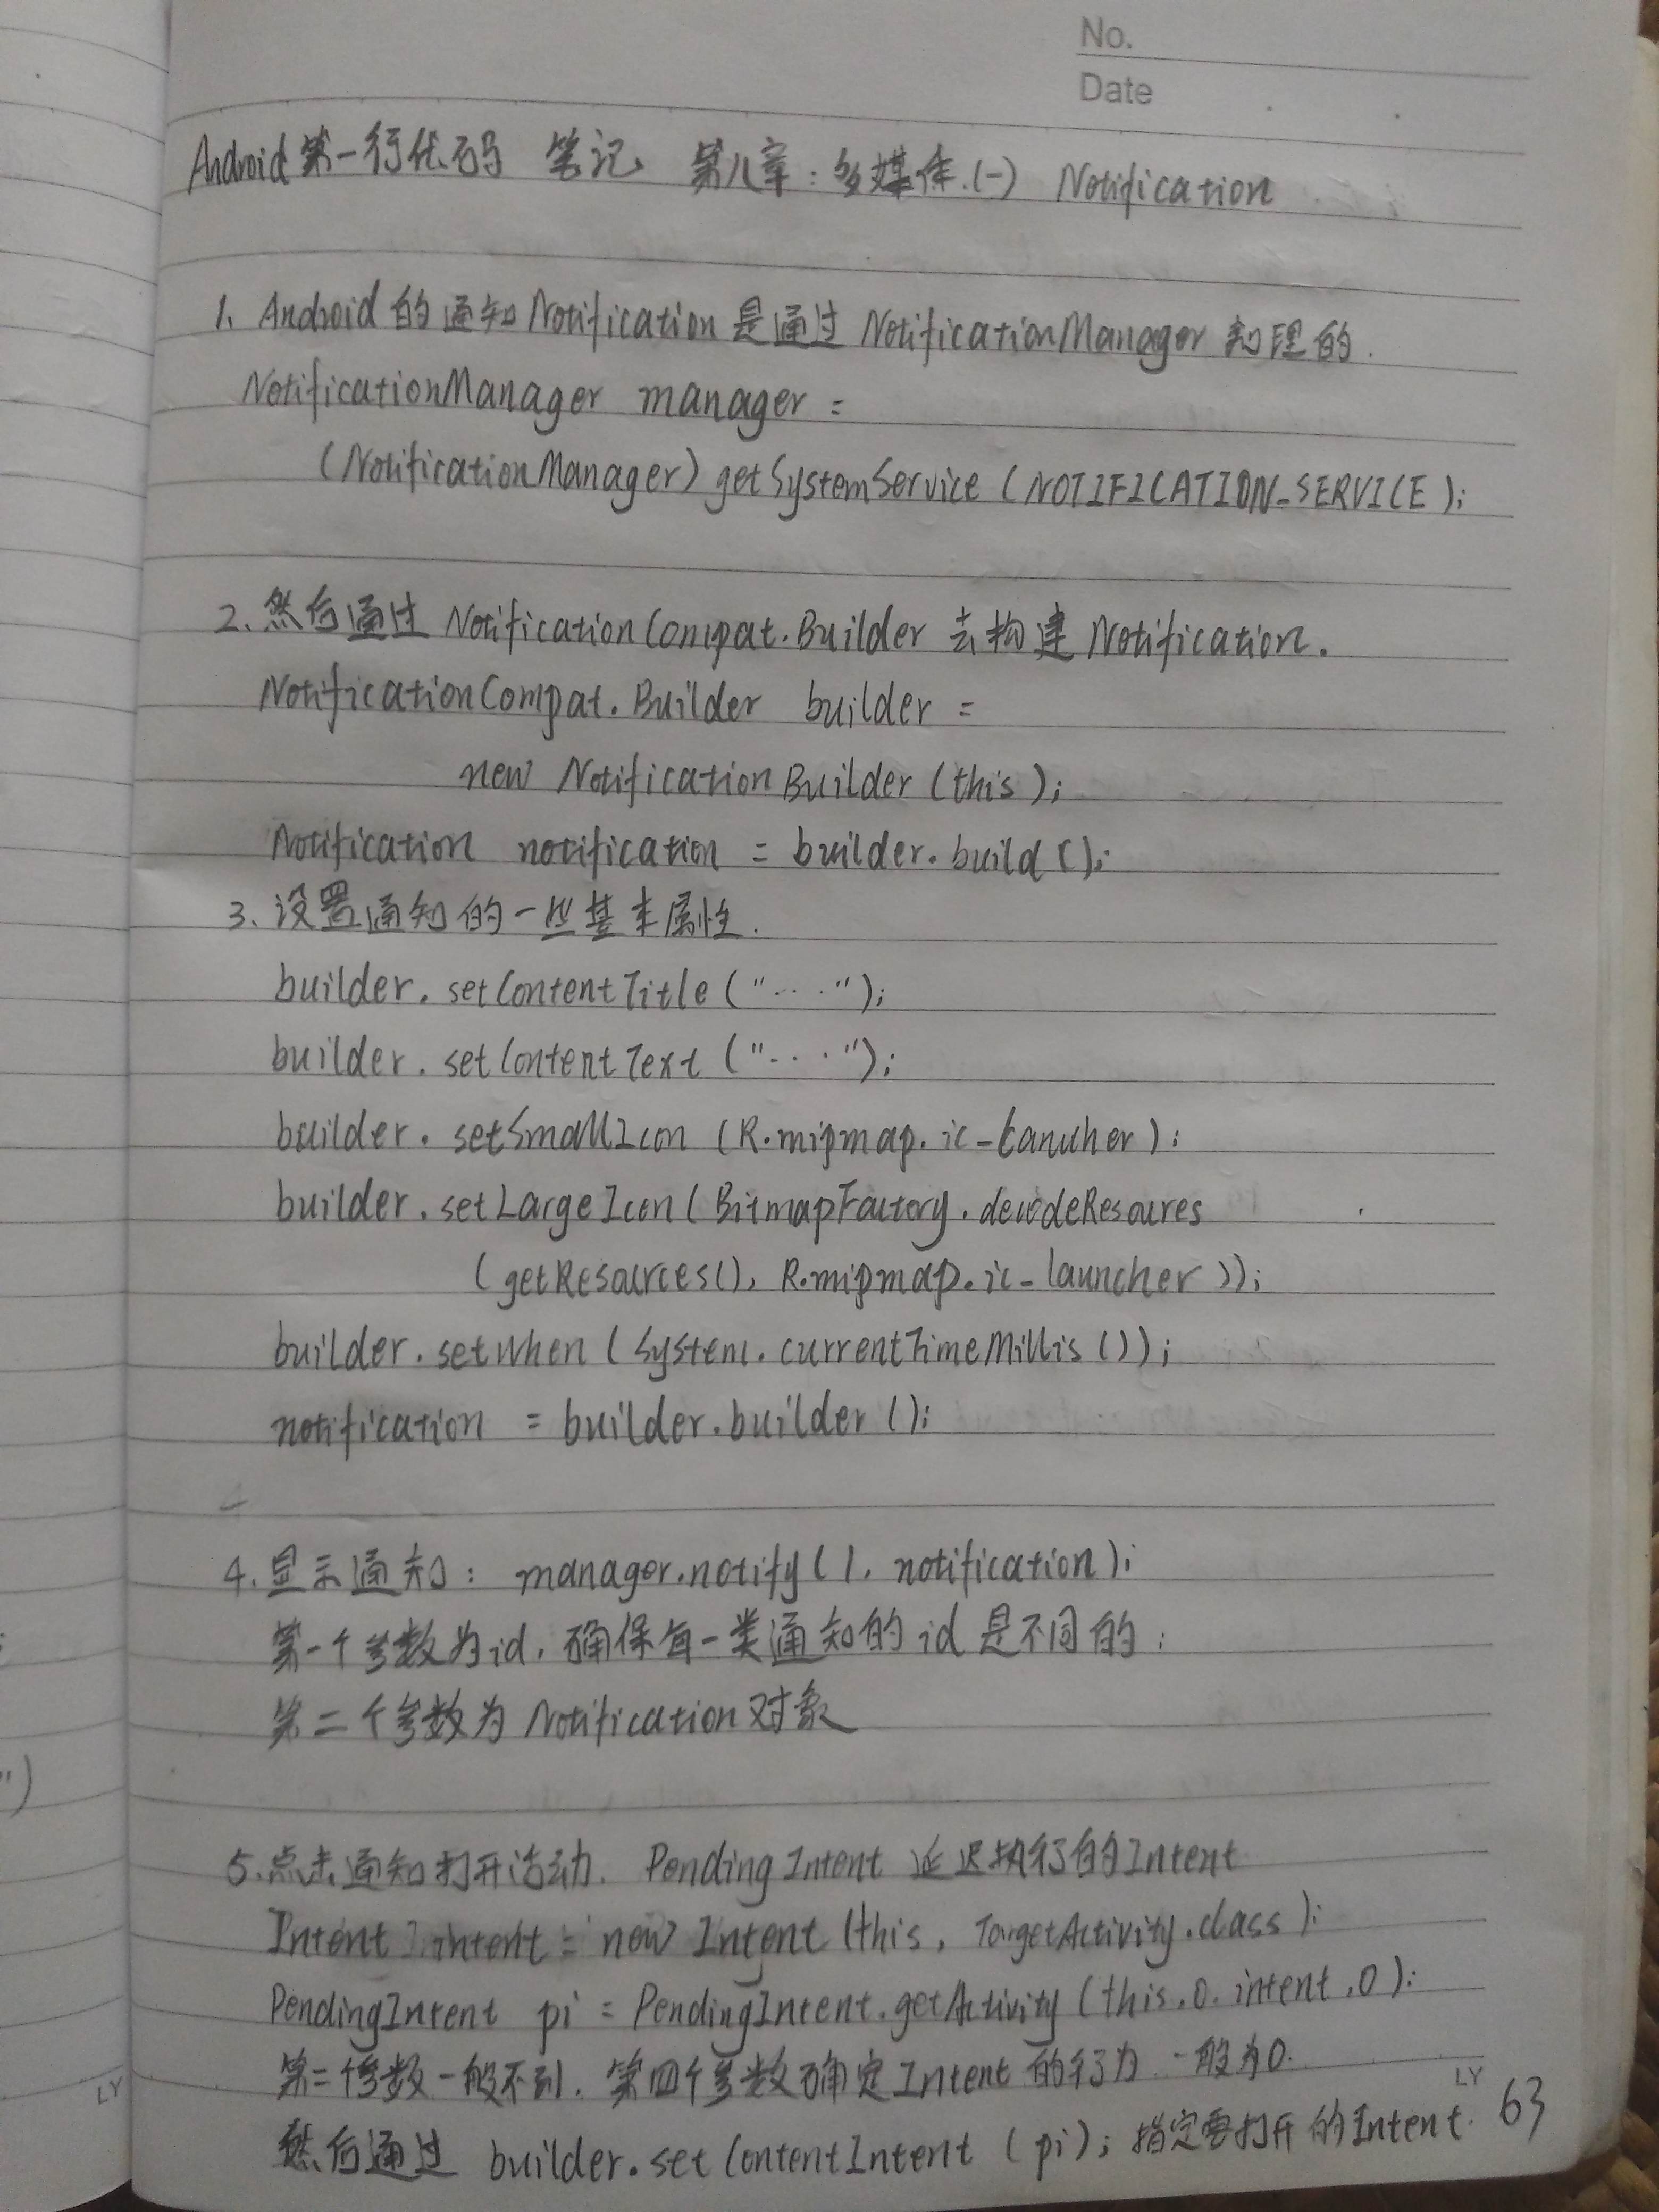 No.
Date
Android第一行代码 笔记 第八章：多媒体.(一) Notification
1、Android的通知Notification是通过NotificationManager 理的.
NotificationManager manager =
(NotificationManager) getSystemService (NOTIFICATION_SERVICE);
2、然后通过 NotificationCompat.Builder 去构建 Notification.
NotificationCompat.Builder builder =
new NotificationBuilder (this);
Notification notification = builder.build ();
3、设置通知的一些基本属性.
builder. setContentTitle ("....");
builder. setContentText ("....");
builder. setSmallIcon (R.mipmap. ic_ );
builder. setLargeIcon (BitmapFactory. decodeResoures
(getResources(), R.mipmap. ic_launcher ));
builder. setWhen (System. currentTimeMillis ());
notification = builder.builder ();
4.显示通知： manager.notify (1, notification);
第一个参数为id, 确保每一类通知的id是不同的;
第二个参数为 Notification对象
5.点击通知打开活动. PendingIntent 延迟执行的Intent
Intent intent = new Intent (this, TargetActivity.class);
PendingIntent pi = PendingIntent.getActivity (this,0, intent,0);
第二个参数一般不到, 第四个参数确定Intent的行为 一般为0.
然后通过 builder. setContentIntent (pi); 指定要打开的Intent.
LY
63
LY
")